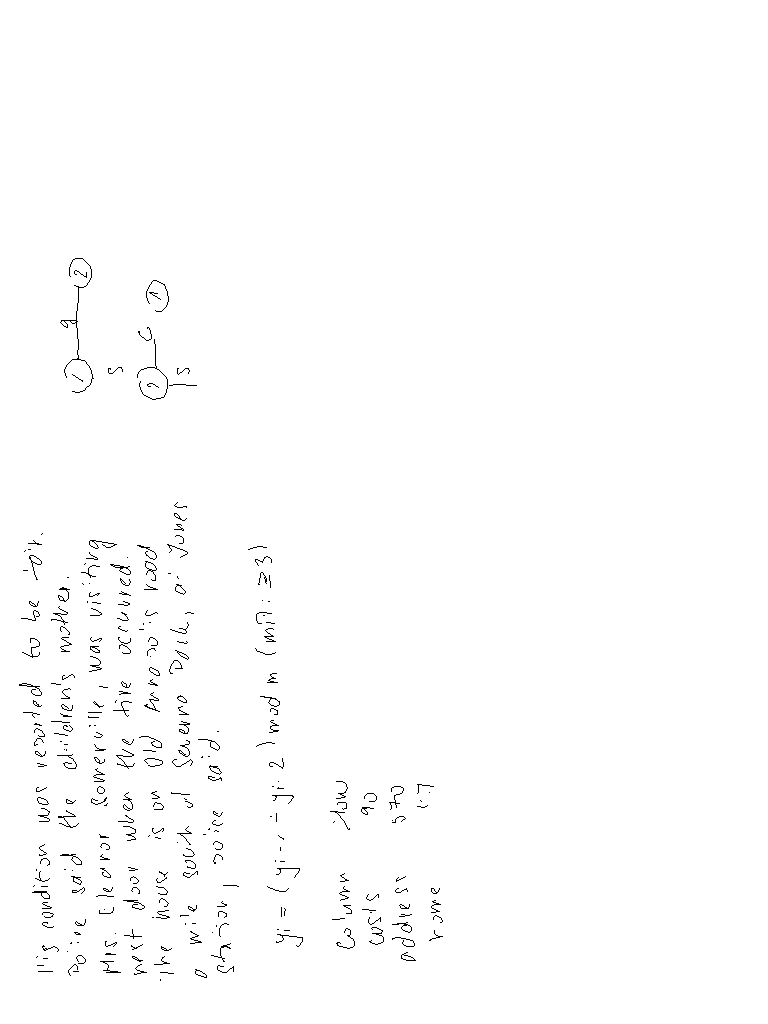 His condition was reported to be fair.
Police said the children's mother,
Mrs. Eleanor Somerville, was visiting
next door when the fire occurred.
The house is on Old Annapolis road
a mile south of Severna Park, at Jones
station, police said.
yi = (yi-1 + yi-2) mod m (mit i ≥ 3)
Column slow
costs 90
address 570
name 1.7
1 g 2
S
2 C 1
S